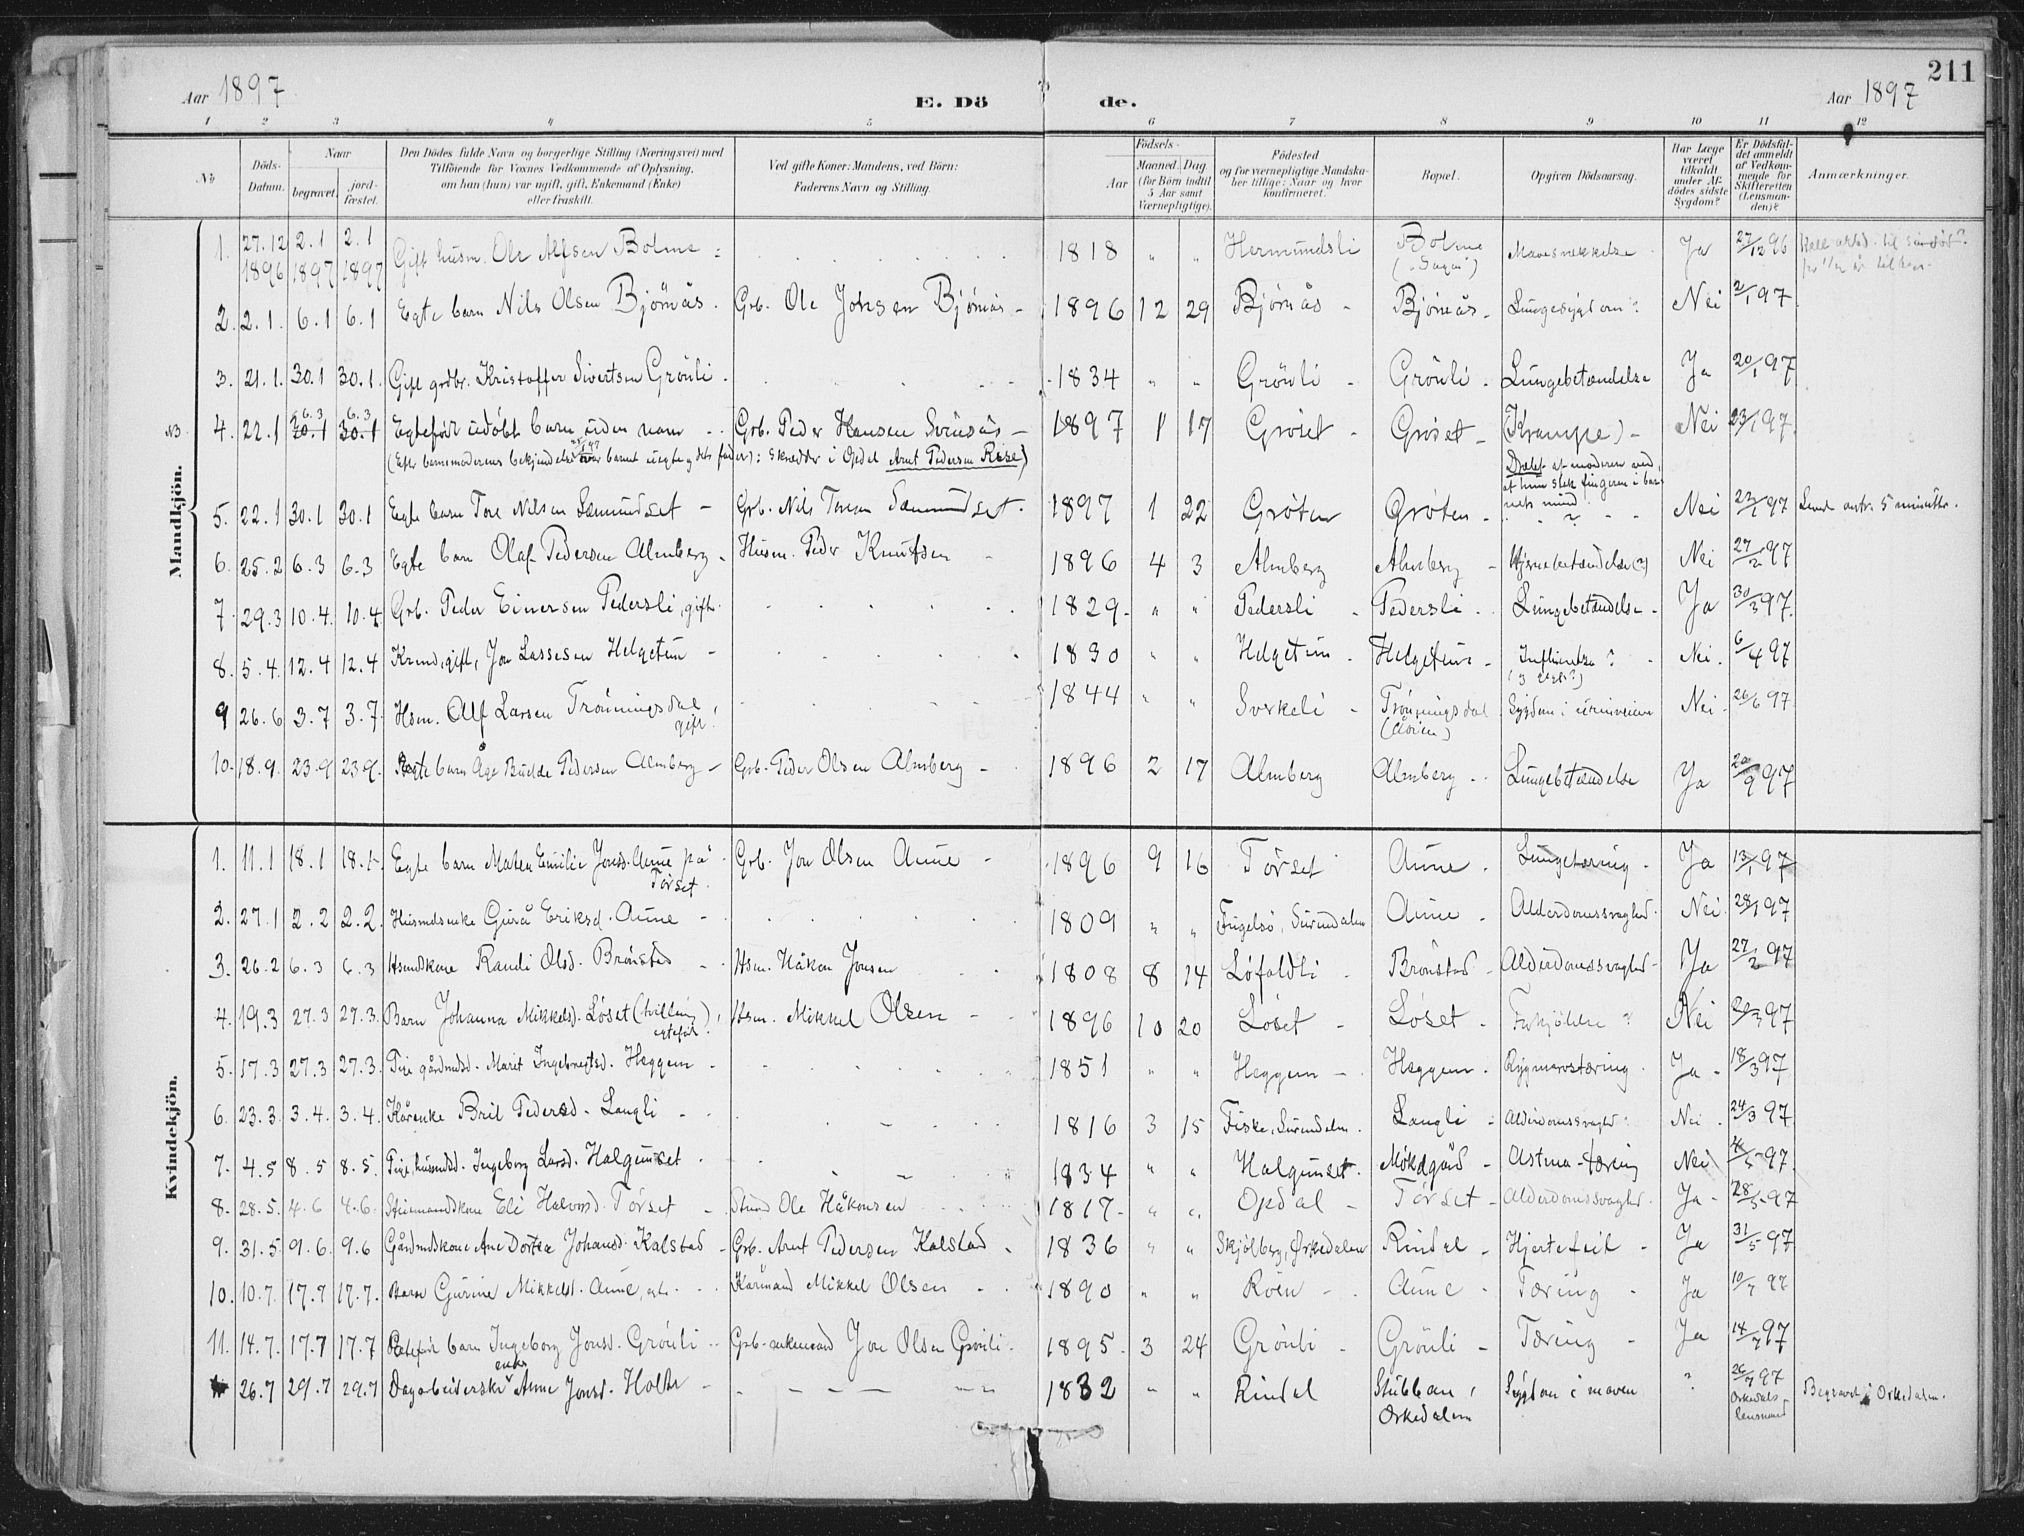 211
Aar 1897 E. Dö de. Aar 1897
1 2 3 4 5 6 7 8 9 10 11 12
No
Döds-Datum.
Naar begravet. jord-fæstet.
Den Dödes fulde Navn og borgerlige Stilling (Næringsvei) med Tilföiende for Voxnes Vedkommende af Oplysning, om han (hun) var ugift, gift, Enkemand (Enke) eller fraskilt.
Ved gifte Koner: Mandens, ved Börn: Faderens Navn og Stilling.
Födsels- Aar Maaned. Dag (for Börn indtil 5 Aar samt Værnepligtige).
Födested og for værnepligtige Mandskaber tillige: Naar og hvor konfirmeret.
Bopæl.
Opgiven Dödsaarsag.
Har Læge været tilkaldt under Afdödes sidste Sygdom?
Er Dödsfaldet anmeldt af Vedkommende for Skifteretten (Lensmanden)?
Anmærkninger.
Mandkjön.
1. 27.12 1896 2.1 1897 2.1 1897 Gift husm. Ole Alfsen Bolme 1818 " " Hermundsli Bolme Ja 27/12 96
2. 2.1. 6.1 6.1 Egte barn Nils Olsen Bjørnås. Grb. Ole Johsen Bjørnås - 1896 12 29 Bjørnås - Bjørnås - Lungesygdom? Nei 2/1 97
3. 21.1. 30.1 30.1. Gift grdbr. Kristoffer Sivertsen Grönli. 1834 " " Grönli - Grönli - Lungebetændelse Ja 20/1 97
4. 22.1 6.3 30.1 6.3 30.1 Egtefødt udøbt barn uden navn - Grb. Peder Hansen - 1897 1 17 Grøset - Grøset - (Krampe) - Nei 23/1 97
(Efter barnemoderens bekjendelse var barnet uegte og dets fader): Skrædder i Opdal Arnt Pedersen Rise)
Dræbt at moderen ved, at hun stak fingeren i barnets mund
5. 22.1 30.1 30.1 Egte barn Tore Nilsen Sæmundset - Grb. Nils Toresen Sæmundset. 1897 1 22 Grøten Grøten - " " ? Nei 23/1 97 Levede antr. 5 minutter.
6. 25.2 6.3 6.3 Egte barn Olaf Pedersen Almberg - Husm. Peder Knutsen - 1896 4 3 Almberg Almberg - Hjernebetændelse(?) Nei 27/2 97
7. 29.3 10.4. 10.4 Grb. Peder Einersen Pedersli, gift. 1829 " " Pedersli - Pedersli. Lungebetændelse - Ja 30/3 97.
8. 5.4. 12.4 12.4 gift, Jon Lassesen Helgetun - 1830 " " Helgetun - Helgetun - Influenza? Nei. 6/4 97
9 26.6 3.7 3.7. Hsm. Alf Larsen Trønningsdal, gift. 1844 " " Sverkeli - Trønningsdal Sygdom i urinveiene Nei. 26/6 97
10. 18.9. 23.9 23.9. Egte barn Åge Budde Pedersen Almberg - Grb. Peder Olsen Almberg - 1896 2 17 Almberg Almberg. Lungebetændelse Ja 20/9 97
Kvindekjön.
1. 11.1 18.1 18.1. Egte barn Malea Emilie Jonsd. Aune på Tørset. Grb. Jon Olsen Aune - 1896 9 16 Tørset Aune. Lungetæring. Ja 13/1 97
2. 27.1 2.2 2.2. Husmdsenke Gurå Eriksd. Aune - 1809 " " Fugelsö, Surendalen Aune - Alderdomssvaghed. Nei. 28/1 97
3. 26.2 6.3 6.3 Husmdskone Randi Olsd. Brønstad Hsm. Håkon Jonsen 1808 8 14 Løfaldli Brønstad - Alderdomssvaghed - Ja 27/2 97
4. 19.3 27.3 27.3. Barn Johanna Mikkelsd. Løset (tvilling), egtefødt. Hsm. Mikkel Olsen - 1896 10 20 Løset - Løset - Forkjølelse? Nei 20/3 97
5. 17.3 27.3 27.3. Pige gårdmdsd. Marit Ingebrigtsd. Heggem - 1851 " " Heggem - Heggem. Rygmarvstæring. Ja - 18/3 97
6. 23.3. 3.4. 3.4. Kårenke Bril Pedersd. Langli 1816 3 15 Fiske, Surendalen. Langli - Alderdomssvaghed. Nei. 24/3 97
7. 4.5 8.5 8.5. Pige, husmdsd. Ingeborg Larsd. Halgunset. 1834 " " Halgunset. - Astma-tæring Nei 4/5 97.
8. 28.5. 4.6 4.6. Eli Halvorsd. Tørset Ole Håkonsen 1817. " " Opdal - Tørset - Alderdomssvaghed. Ja - 28/5 97
9. 31.5 9.6. 9.6 Gårdmdskone Ane Dortea Johansd. Kalstad - Grb. Arnt Pedersen Kalstad - 1836 " " Skjølberg, Ørkedalen Rindal - Hjertefeil - Ja 31/5 97
10. 10.7. 17.7 17.7. Barn Gurine Mikkelsd. Aune, Kårmand Mikkel Olsen 1890 " " Röen Aune - Tæring - Ja 10/7 97
11. 14.7. 17.7 17.7 Egtefødt barn Ingeborg Jonsd. Grönli Grb. enkemand Jon Olsen Grönli - 1895. 3 24 Grönli - Grönli - Tæring - Ja 14/7 97
26.7 29.7 29.7 Dagarbeiderske enke Anne Jonsd. Holte - 1832 " " Rindal Stubban, Orkedalen Sygdom i maven ? 26/7 97 Orkedals lensmand Begravet i Orkedalen.